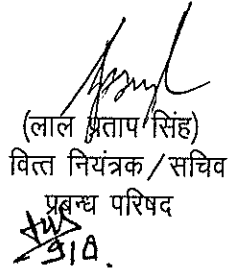 (लाल प्रताप सिंह)
वित्त नियंत्रक / सचिव
प्रबन्ध परिषद